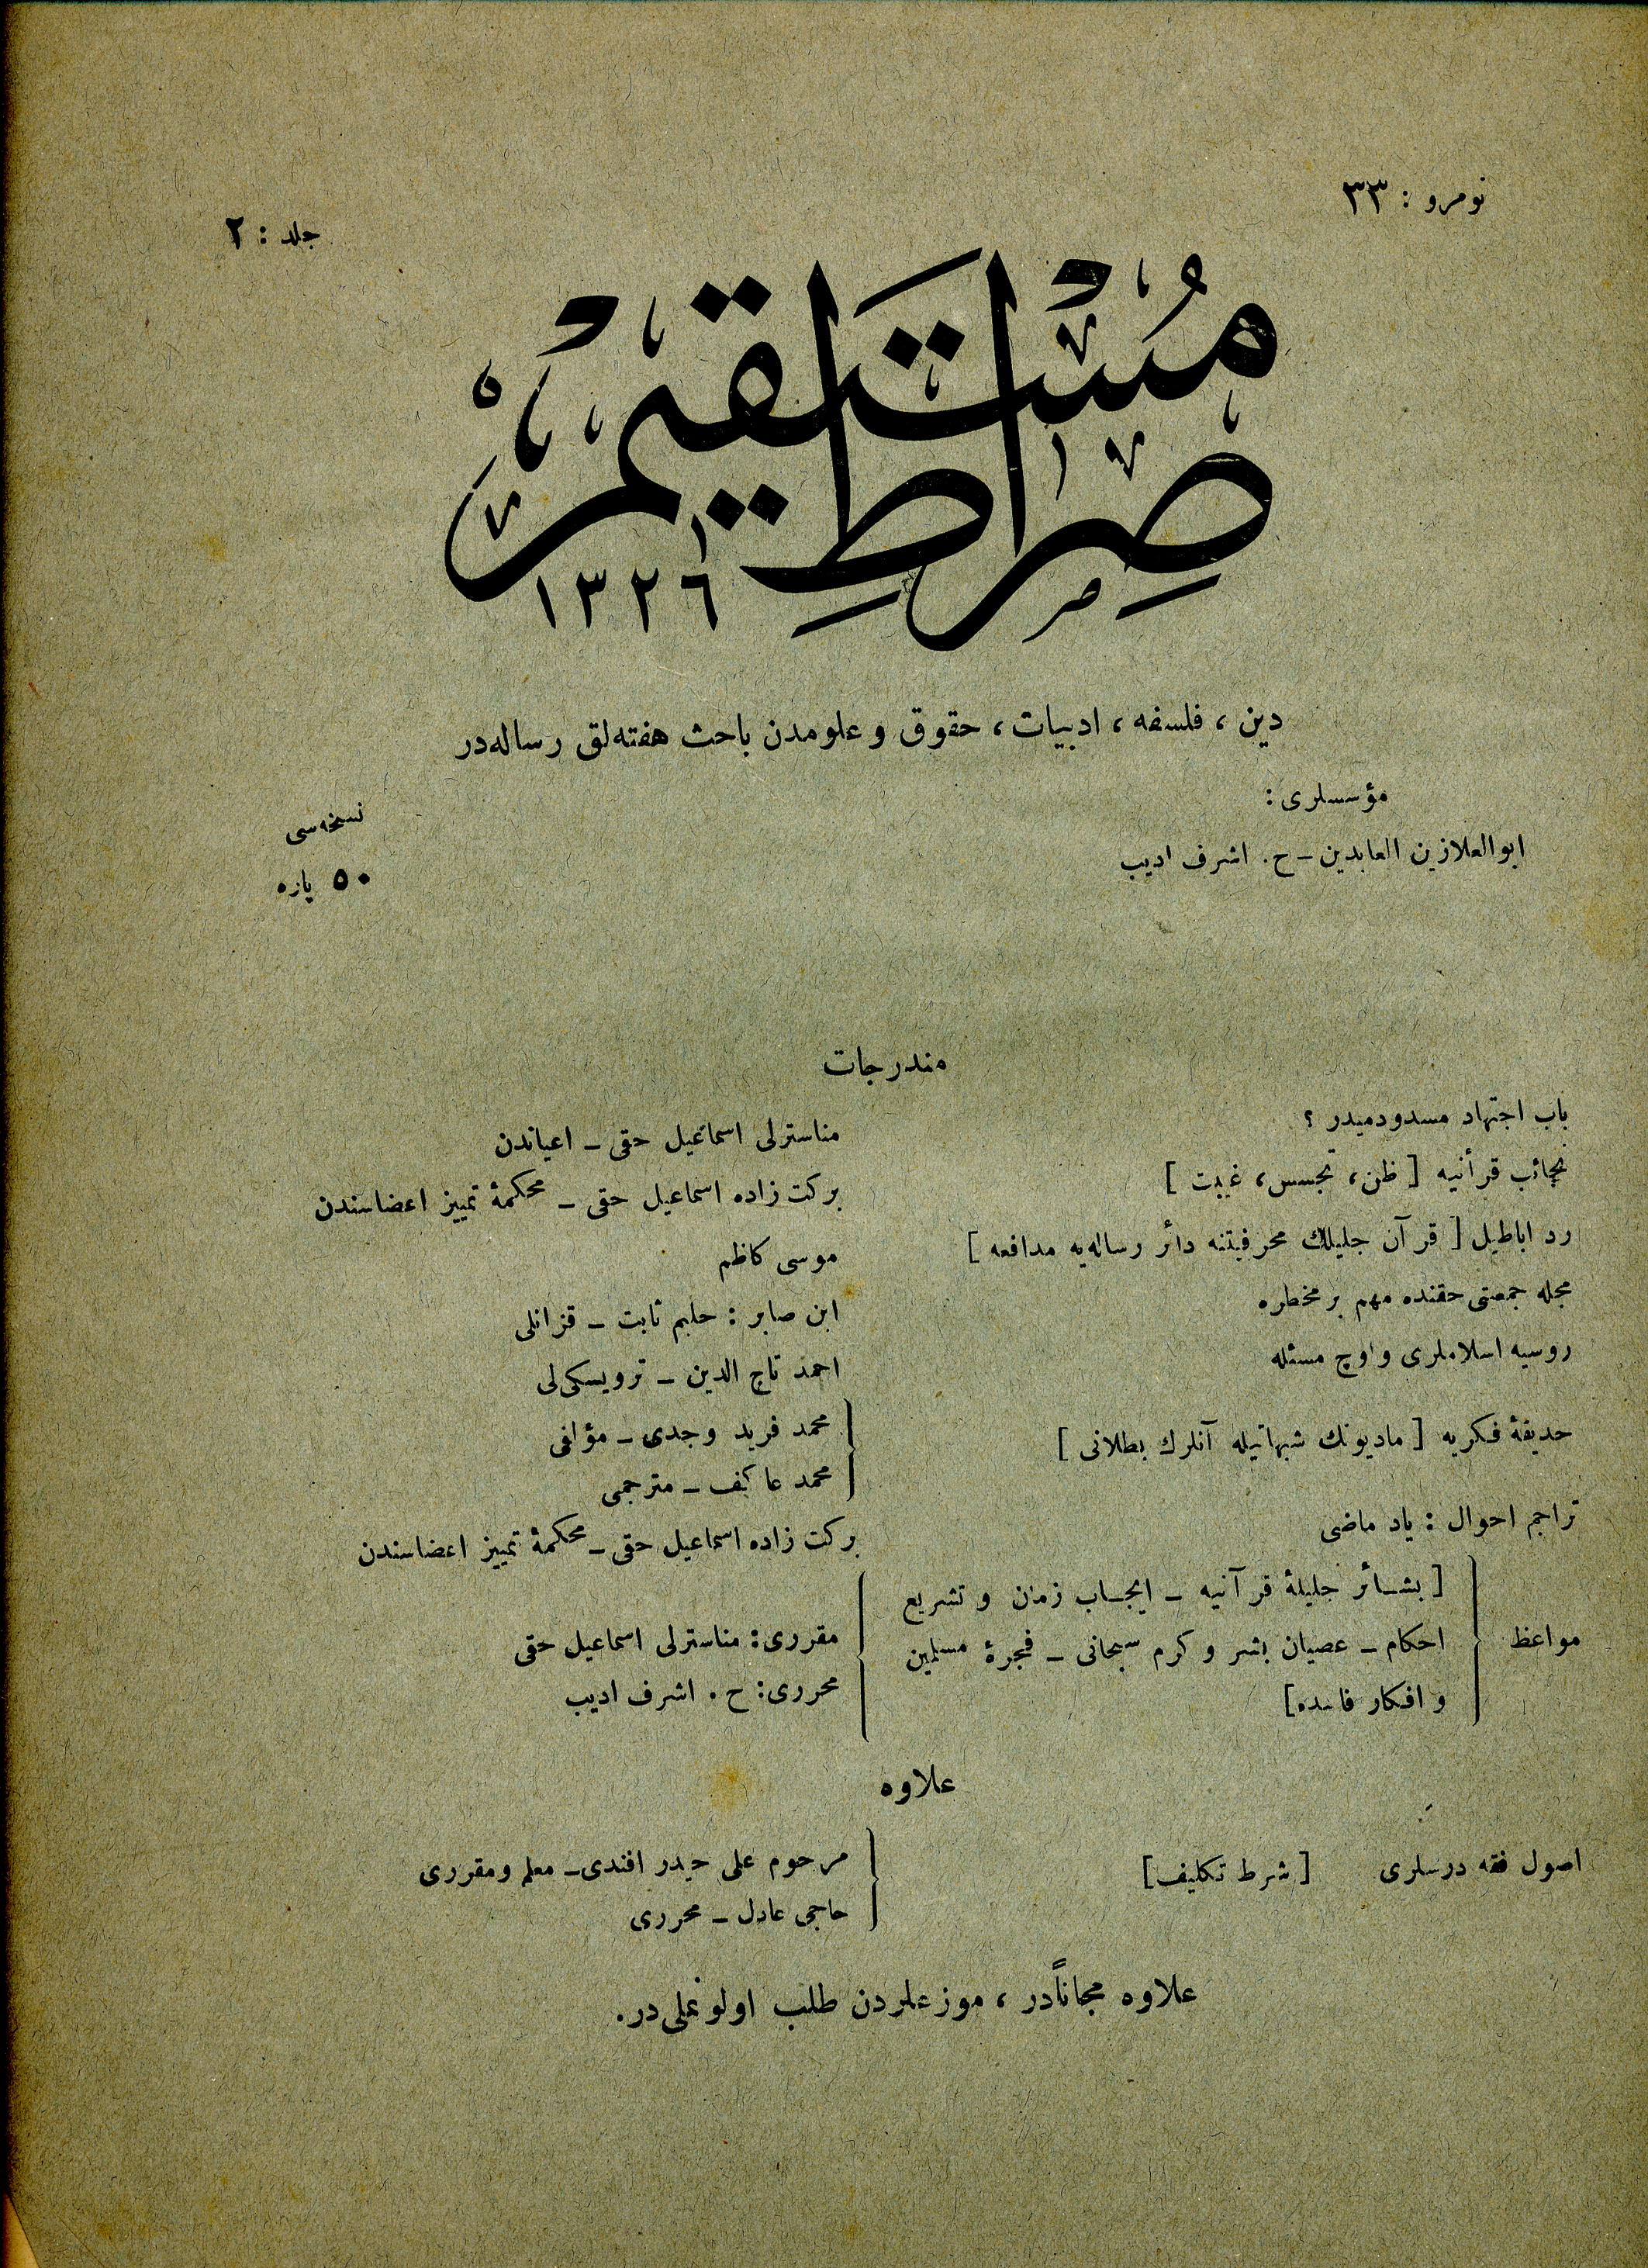 نومرو : ٣٣
جلد : ٢
صِرَاطِ مُسْتَقِيمْ
١٣٢٦
دين ، فلسفه ، ادبيات ، حقوق و علومدن باحث هفته‌لق رساله‌در
مؤسسلرى :
ابوالعلا زين العابدين – ح . اشرف اديب
نسخه‌سى
٥٠ پاره
مندرجات
باب اجتهاد مسدودميدر ؟
مناسترلى اسماعيل حقى – اعياندن
نجائب قرأنيه [ ظن ، تجسس ، غيبت ]
بركت زاده اسماعيل حقى – محكمهٔ تمييز اعضاسندن
رد اباطيل [ قرآن جليلك محرفيتنه دائر رساله‌يه مدافعه ]
موسى كاظم
مجله جمعتى حقنده مهم بر مخطره
ابن صابر : حليم ثابت – قزانلى
روسيه اسلاملرى و اوچ مسئله
احمد تاج الدين – ترويسكى‌لى
حديقهٔ فكريه [ ماديونك شبهاتيله آنلرك بطلانى ]
محمد فريد وجدى – مؤلفى
محمد عاكف – مترجمى
تراجم احوال : ياد ماضى
بركت زاده اسماعيل حقى – محكمهٔ تمييز اعضاسندن
مواعظ
[ بشائر جليلهٔ قرآنيه – ايجاب زمان و تشريع
احكام – عصيان بشر و كرم سبحانى – فجرهٔ مسلمين
و افكار فاسده ]
مقررى : مناسترلى اسماعيل حقى
محررى : ح . اشرف اديب
علاوه
اصول فقه درسلرى [ شرط تكليف ]
مرحوم على حيدر افندى – معلم ومقررى
حاجى عادل – محررى
علاوه مجاناًدر ، موزعلردن طلب اولونملى‌در .